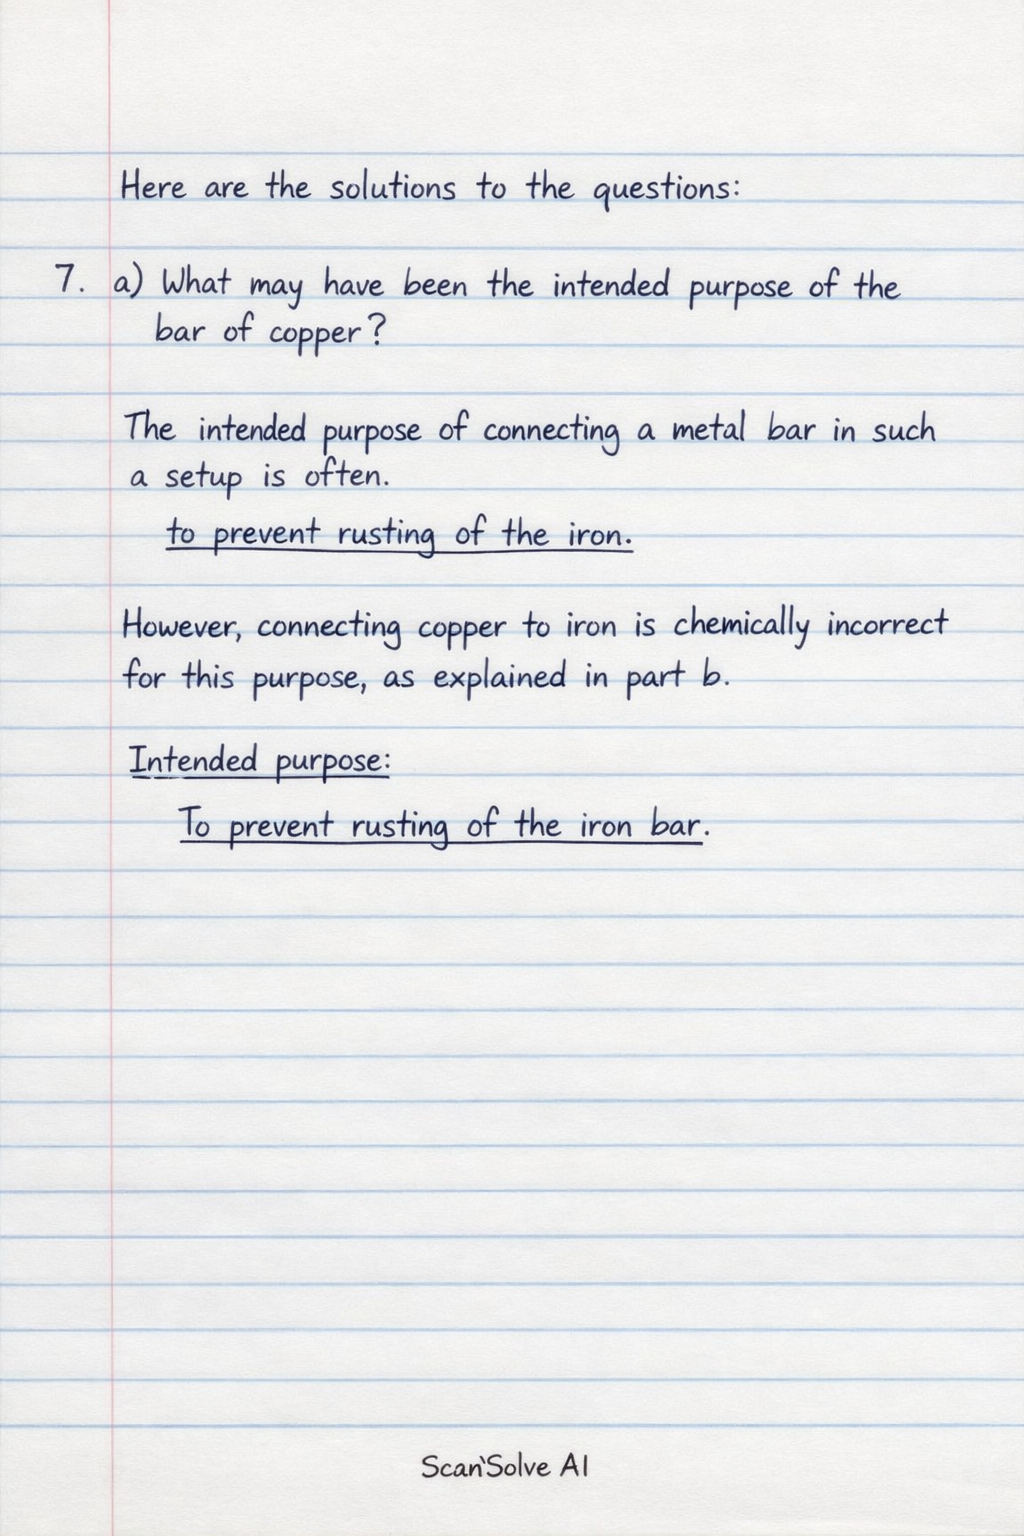 Here are the solutions to the questions:
7. a) What may have been the intended purpose of the
bar of copper?
The intended purpose of connecting a metal bar in such
a setup is often.
to prevent rusting of the iron.
However, connecting copper to iron is chemically incorrect
for this purpose, as explained in part b.
Intended purpose:
To prevent rusting of the iron bar.
Scan'Solve AI